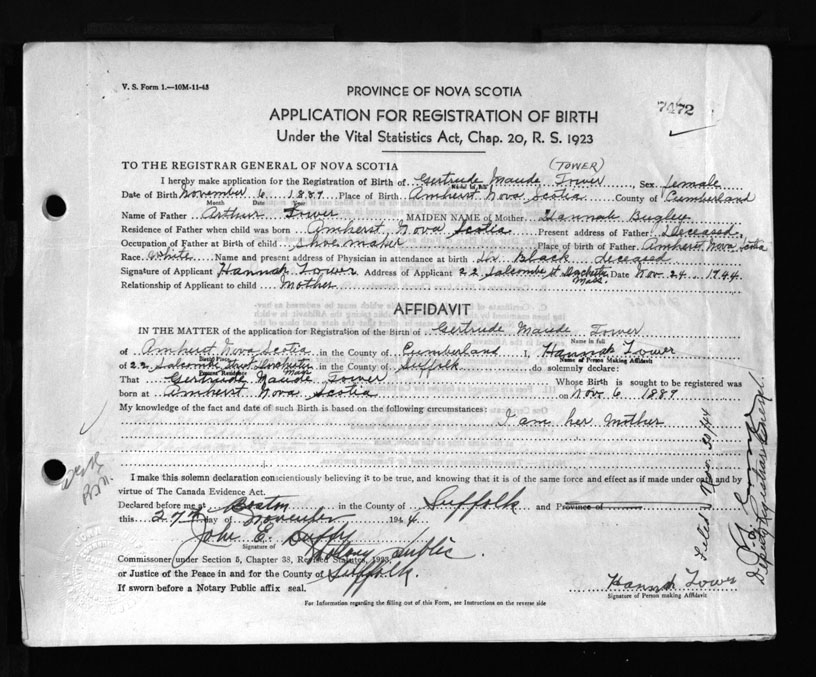 V. S. Form 1.—10M-11-43
PROVINCE OF NOVA SCOTIA
7472
APPLICATION FOR REGISTRATION OF BIRTH
Under the Vital Statistics Act, Chap. 20, R. S. 1923
(TOWER)
TO THE REGISTRAR GENERAL OF NOVA SCOTIA
I hereby make application for the Registration of Birth of Gertrude Maude Tower, Sex female
Date of Birth November 6 1889 Place of Birth Amherst Nova Scotia County of Cumberland
Month Date Year
Name of Father Arthur Tower MAIDEN NAME of Mother Hannah
Residence of Father when child was born Amherst, Nova Scotia Present address of Father Deceased
Occupation of Father at Birth of child shoemaker Place of birth of Father Amherst Nova Scotia
Race White Name and present address of Physician in attendance at birth Dr. Black deceased
Signature of Applicant Hannah Tower Address of Applicant 22 Salcombe St Mass. Date Nov. 24 1944
Relationship of Applicant to child Mother
AFFIDAVIT
IN THE MATTER of the application for Registration of the Birth of Gertrude Maude Tower
Name in full
of Amherst Nova Scotia in the County of Cumberland I, Hannah Tower
Birth Place Name of Person Making Affidavit
of 22 Salcombe Dorchester Mass in the County of Suffolk do solemnly declare:
Present Residence
That Gertrude Maude Tower Whose Birth is sought to be registered was
born at Amherst Nova Scotia on Nov. 6 1889
My knowledge of the fact and date of such Birth is based on the following circumstances:
I am her Mother
I make this solemn declaration conscientiously believing it to be true, and knowing that it is of the same force and effect as if made under oath and by
virtue of The Canada Evidence Act.
Declared before me at Boston in the County of Suffolk and Province of
this 27th day of November 1944
John E. Duffy
Signature of
Notary Public.
Commissoner under Section 5, Chapter 38, Revised Statutes, 1923,
or Justice of the Peace in and for the County of Suffolk.
If sworn before a Notary Public affix seal.
Hannah Tower
Signature of Person making Affidavit
For Information regarding the filling out of this Form, see Instructions on the reverse side
Filed Nov. 30/44
Deputy Registrar General